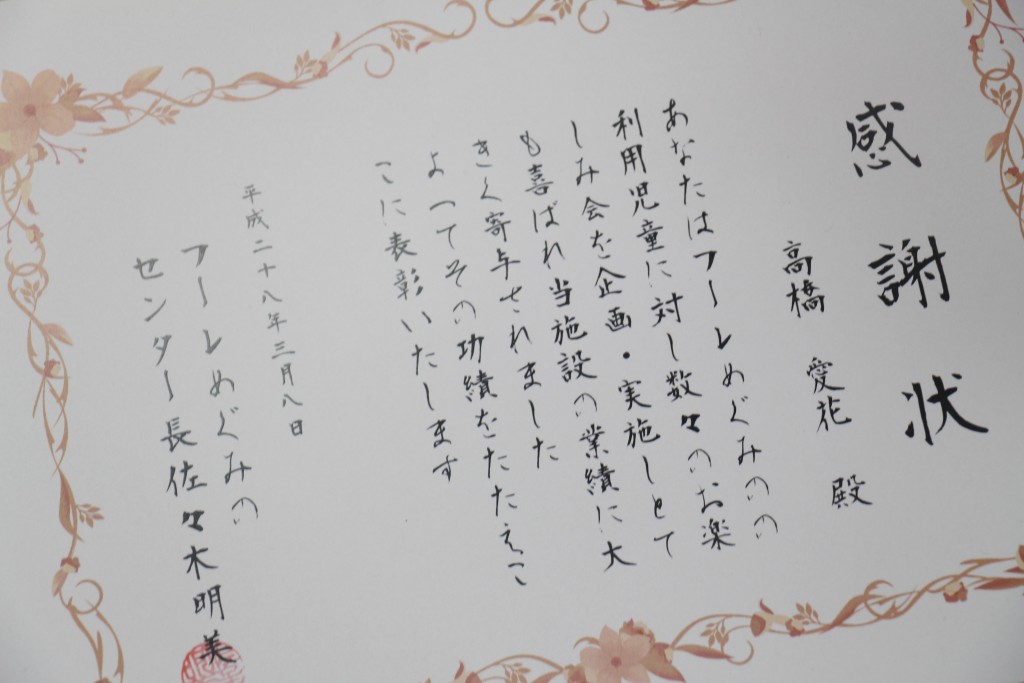 感謝状
高橋 愛花 殿
あなたはフーレめぐみのの
利用児童に対し数々のお楽
しみ会を企画・実施しとて
も喜ばれ当施設の業績に大
きく寄与されました
よってその功績をたたえこ
こに表彰いたします
平成二十八年三月八日
フーレめぐみの
センター長佐々木明美